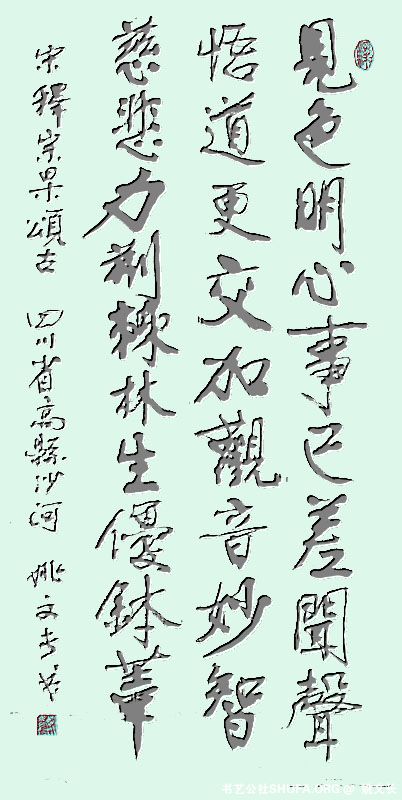 見色明心事已差聞聲
悟道更交加觀音妙智
慈悲力荆棘林生優鉢華
宋釋宗杲頌古 四川省高縣沙河 姚文长书
书艺公社SHUFA.ORG@ 姚文长